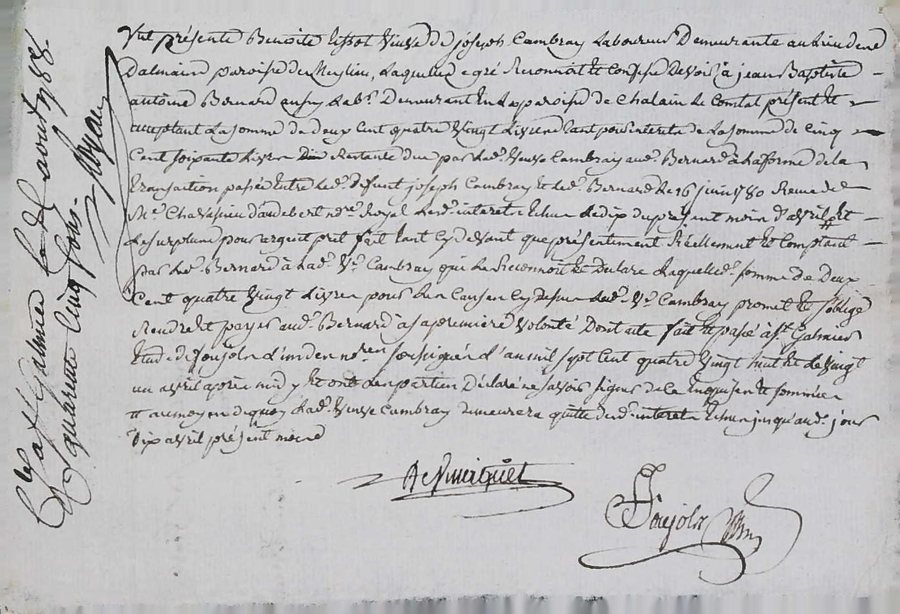 fut présente Benoite tissot veuve de joseph Cambray Laboureur Demeurante au lieu de
Dalmais paroisse de Meylieu, Laquelle de gré Reconnoit et Confesse devoir à jean Baptiste
antoine Bernard aussy Labr. Demeurant en La paroisse de Chalain Le Comtal présent et
acceptant La somme de deux Cent quatre Vingt Livres dont pour interets de La somme de Cinq
Cent soixante Livres Restante due par Lad. Veuve Cambray aud. Bernard à La forme de la
transaction passée entre Led. défunt joseph Cambray et led. Bernard Le 16 juin 1780 Reçue de
Me. Chavassieu d'audebert nre. Royal Lesd. interets Echus Le dix du présent mois d'avril et
Le surplus pour argent prêt fait tant Cy devant que présentement Réellement et Comptant
par Led. Bernard à Lad. Ve. Cambray qui Le Reconnoit et Déclare Laquelle d. somme de Deux
Cent quatre Vingt Livres pour Les Causes Cy dessus Lad. Ve. Cambray promet et s'oblige
Rendre et payer aud. Bernard à sa première Volonté Dont acte fait et passé à St. Galmier
Etude de Soujols L'un des nores. soussignés L'an mil sept Cent quatre Vingt huit et Le Vingt
un avril après midy et ont Les parties Déclaré ne savoir signer de ce Enquises et sommées
et au moyen de quoy Lad. Veuve Cambray demeurera quitte desd. interets Echus jusqu'aud. jour
Dix avril présent mois
Soujols
à St Galmier Le aout 1788.
quarante Cinq sous